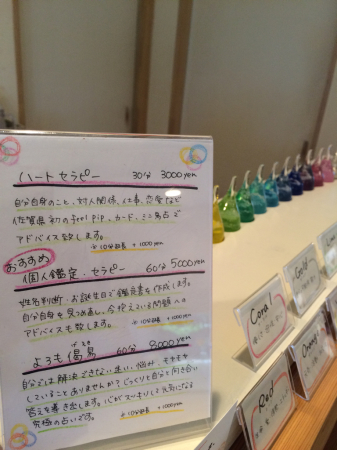 ハートセラピー 30分 3000yen
自分自身のこと、対人関係、仕事、恋愛など
佐賀県初のfeel pip、カード、ミニ易占で
アドバイス致します。
※10分延長 +1000yen
おすすめ
個人鑑定・セラピー 60分 5000yen
姓名判断・お誕生日で鑑定書を作成します。
自分自身を見つめ直し、今抱えている問題への
アドバイスも致します。
※10分延長 +1000yen
よろも 60分 8000yen
自分では解決できない迷い、悩み モヤモヤ
していることありませんか?じっくりと自分と向き合い
答えを導き出します。心がスーキリして元気になる
究極の占いです。
※10分延長 +1000yen
Coral
Gold
Red
Orange